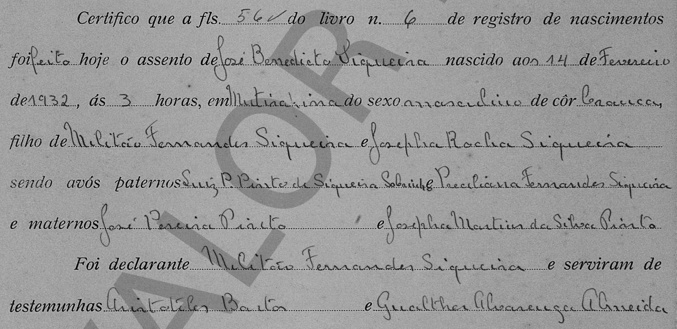 Certifico que a fls. 56v do livro n. 6 de registro de nascimentos
foi feito hoje o assento de José Benedicto Siqueira nascido aos 14 de Fevereiro
de 1932, ás 3 horas, em do sexo masculino de côr branca,
filho de Militão Fernandes Siqueira e Josepha Rocha Siqueira
sendo avós paternos Luiz P. Pinto de Siqueira Sobrinho e Preciliana Fernandes Siqueira
e maternos José Pereira Pinto e Josepha Martins da Silva Pinto
Foi declarante Militão Fernandes Siqueira e serviram de
testemunhas Aristoteles Bastos e Gualther Alvarenga Almeida